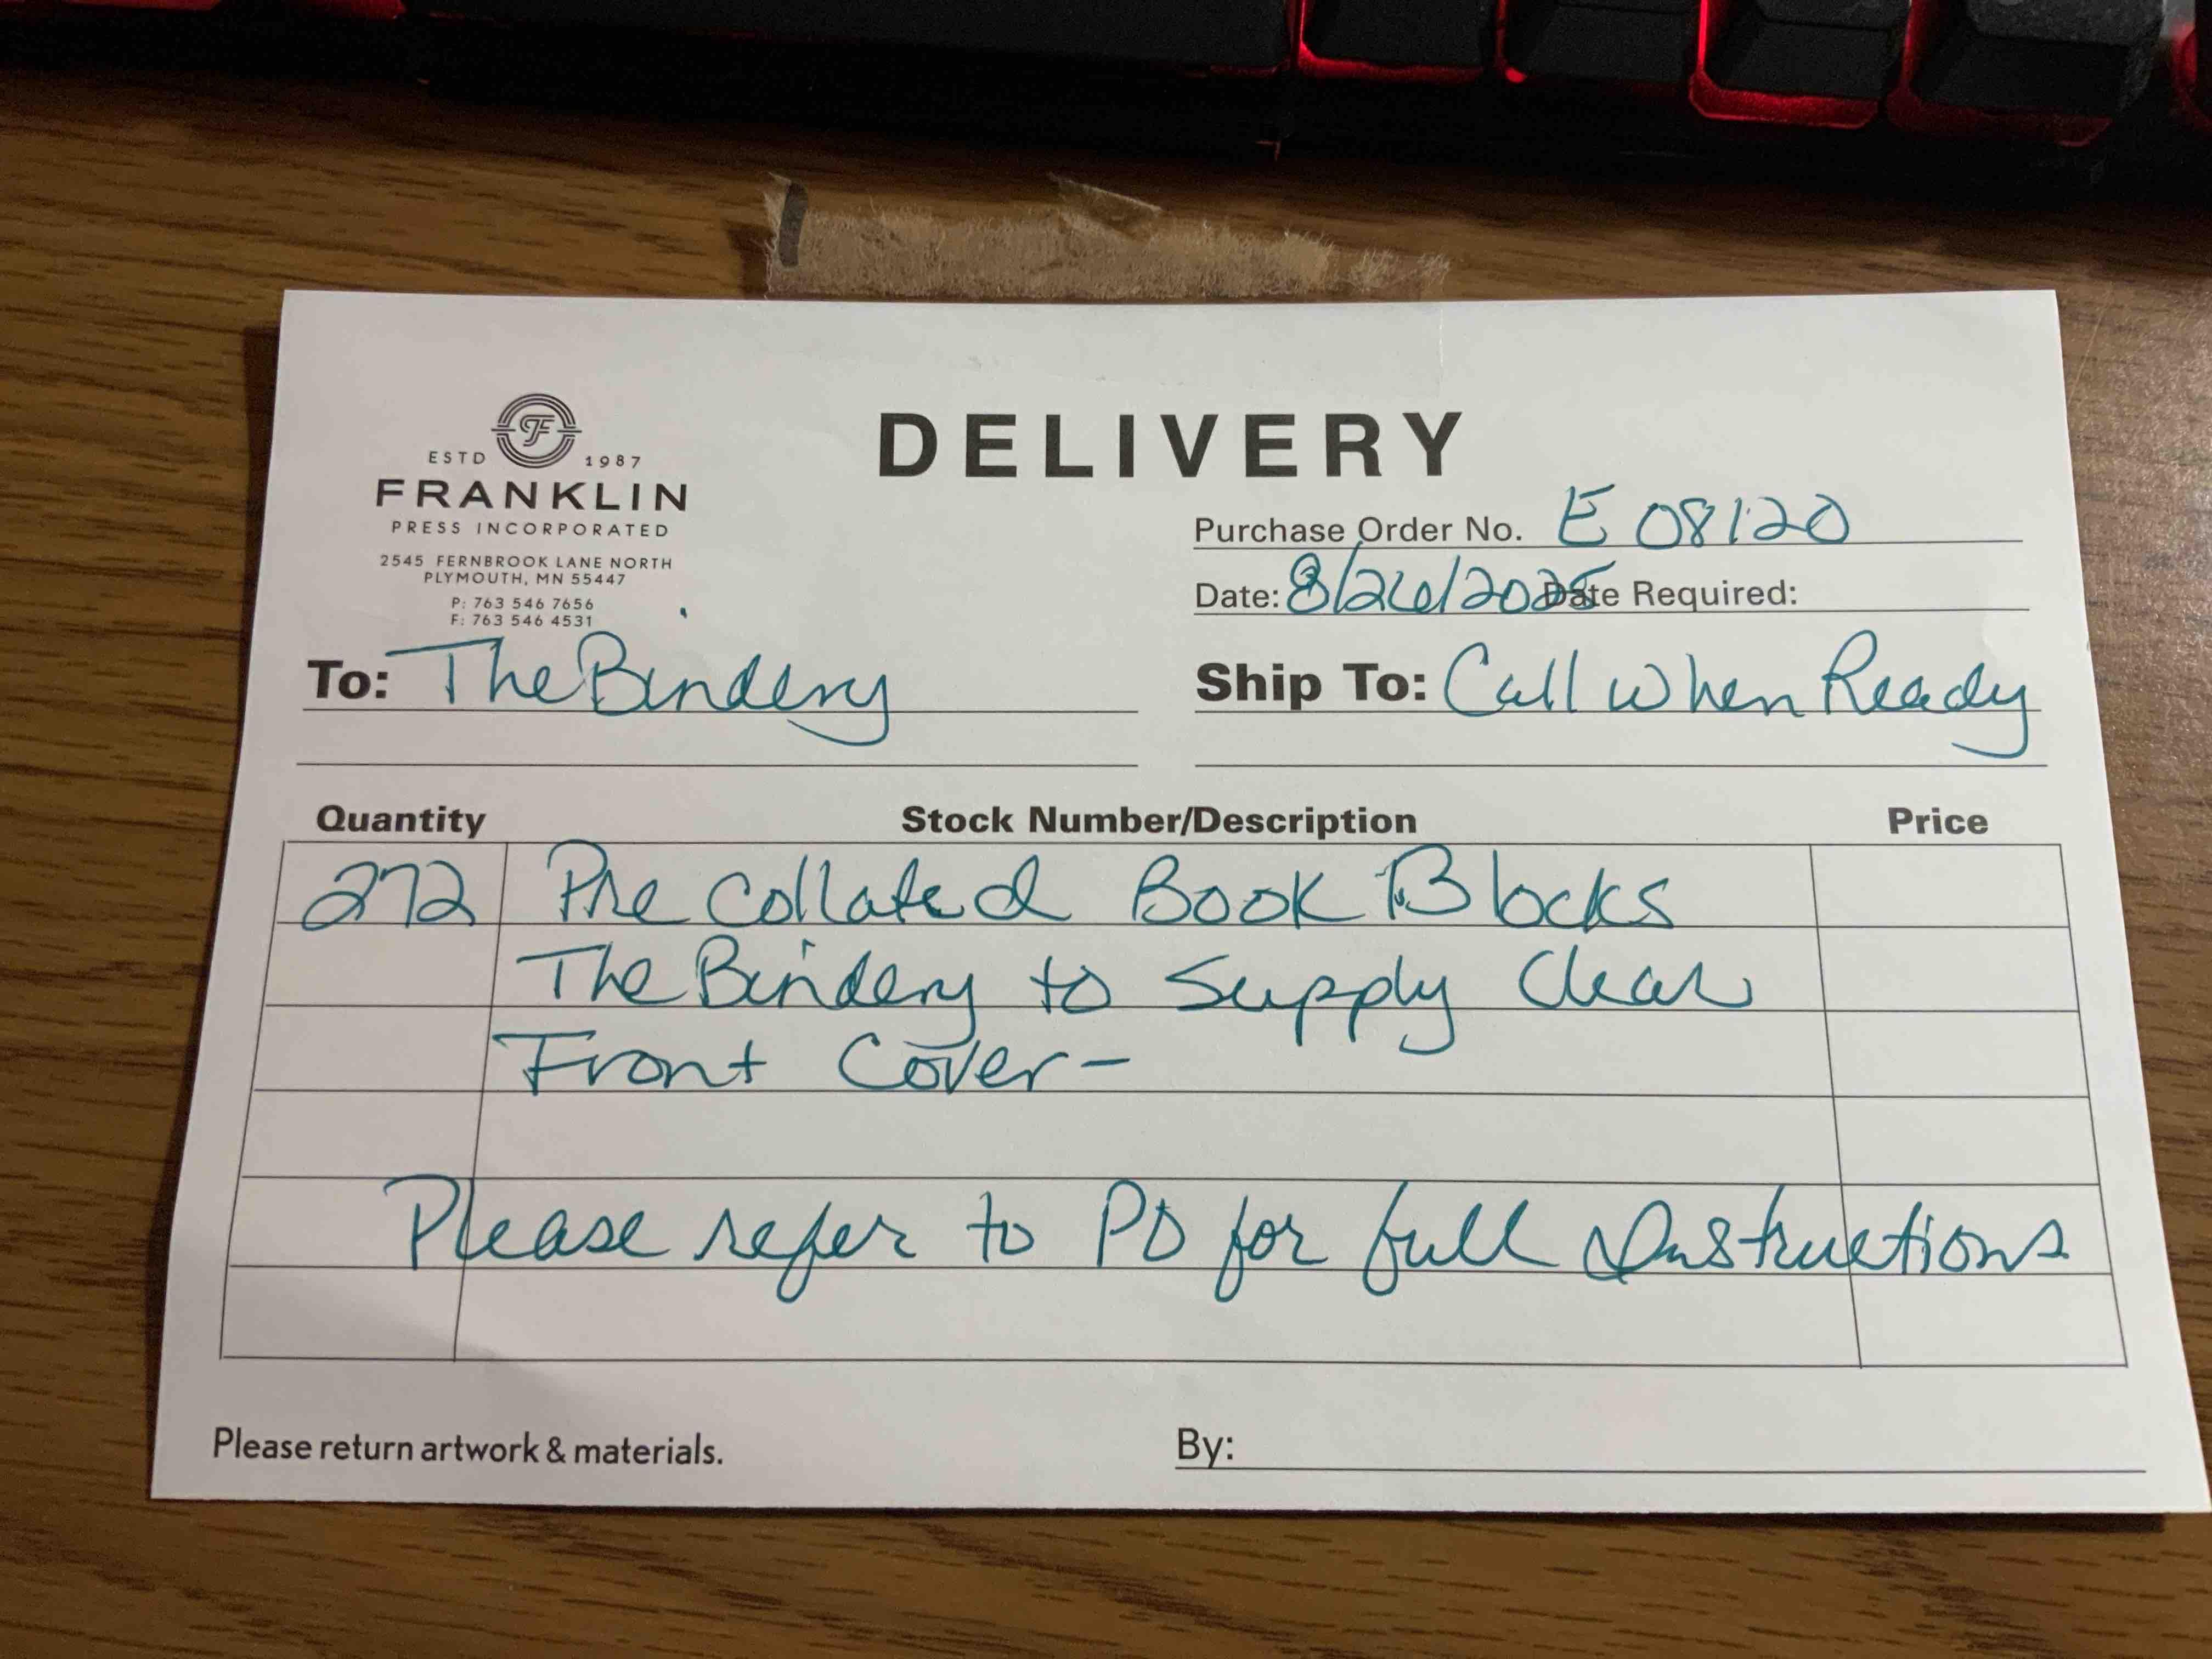 ESTD 1987
FRANKLIN
PRESS INCORPORATED
2545 FERNBROOK LANE NORTH
PLYMOUTH, MN 55447
P: 763 546 7656
F: 763 546 4531
DELIVERY
Purchase Order No. E 08120
Date: 8/26/2025 Date Required:
To: The Bindery
Ship To: Call When Ready
Quantity Stock Number/Description Price
272 Pre Collated Book Blocks
The Bindery to Supply Clear
Front Cover-
Please refer to PO for full Instructions
Please return artwork & materials. By: